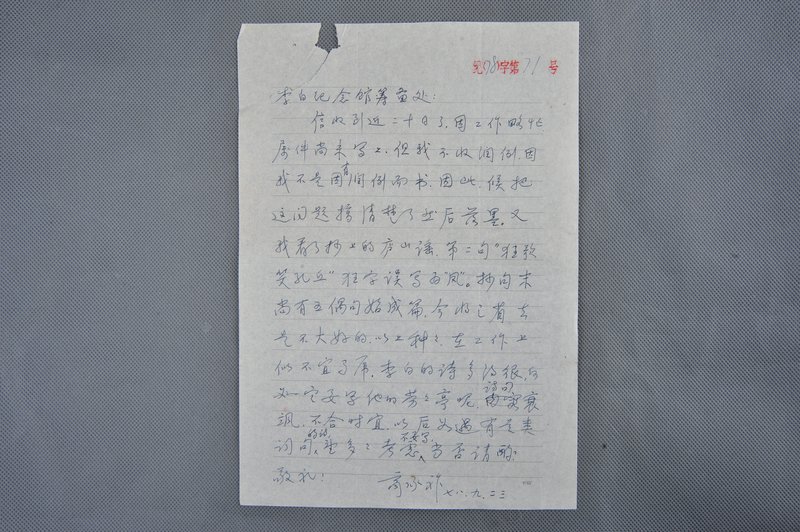 纪78字第71号
李白纪念馆筹备处：
信收到近二十日了，因工作略忙
属件尚未写上，但我不收润例，因
我不是因有润例而书，因此，候把
这问题搞清楚了然后落墨。又
我看了抄上的庐山谣，第二句“狂歌
笑孔丘”狂字误写为“凤”。抄向末
尚有五偶句始成篇，今收之省去
是不大好的，以上种种，在工作上
似不宜马虎，李白的诗多得很，何
必一定要写他的劳劳亭呢，诗句衰
飒，不合时宜，以后如遇有是类
词句的话，望多多考虑不要写，当否请酌
敬礼！
商承祚 七八.九.二三